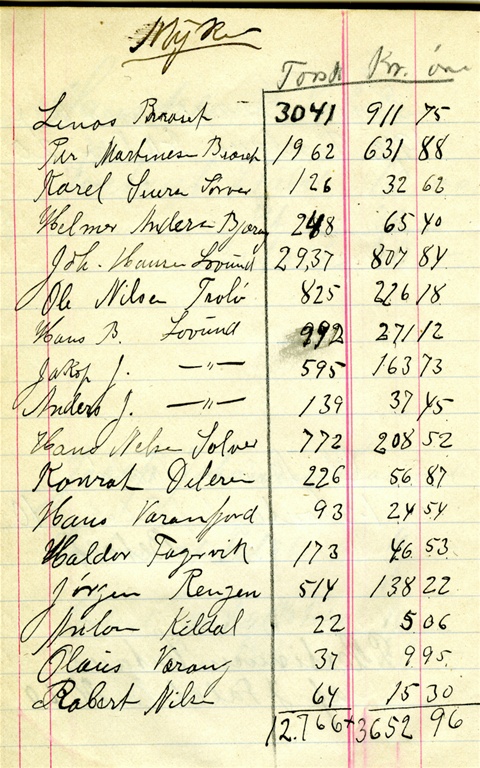 Myken
Torsk Kr. öre
Linas Braset 3041 911 75
Per Martinesen Braset 1962 631 88
Karel Sverre Sørver 126 32 62
Helmer Anders Bjørn 248 65 40
Joh. Hansen Lovund 29,37 807 84
Ole Nilsen Trolø 825 226 18
Hans B. Lovund 992 271 12
Jakop J. —"— 595 163 73
Anders J. —"— 139 37 45
Hans Nelsen Solver 772 208 52
Konrat 226 56 87
Hans Varanfjord 93 24 54
Haldor Fagervik 173 46 53
Jørgen Rengen 514 138 22
Kildal 22 5 06
Olaus Varang 37 9 95
Robert Nilsen 64 15 30
12.766 3652 96